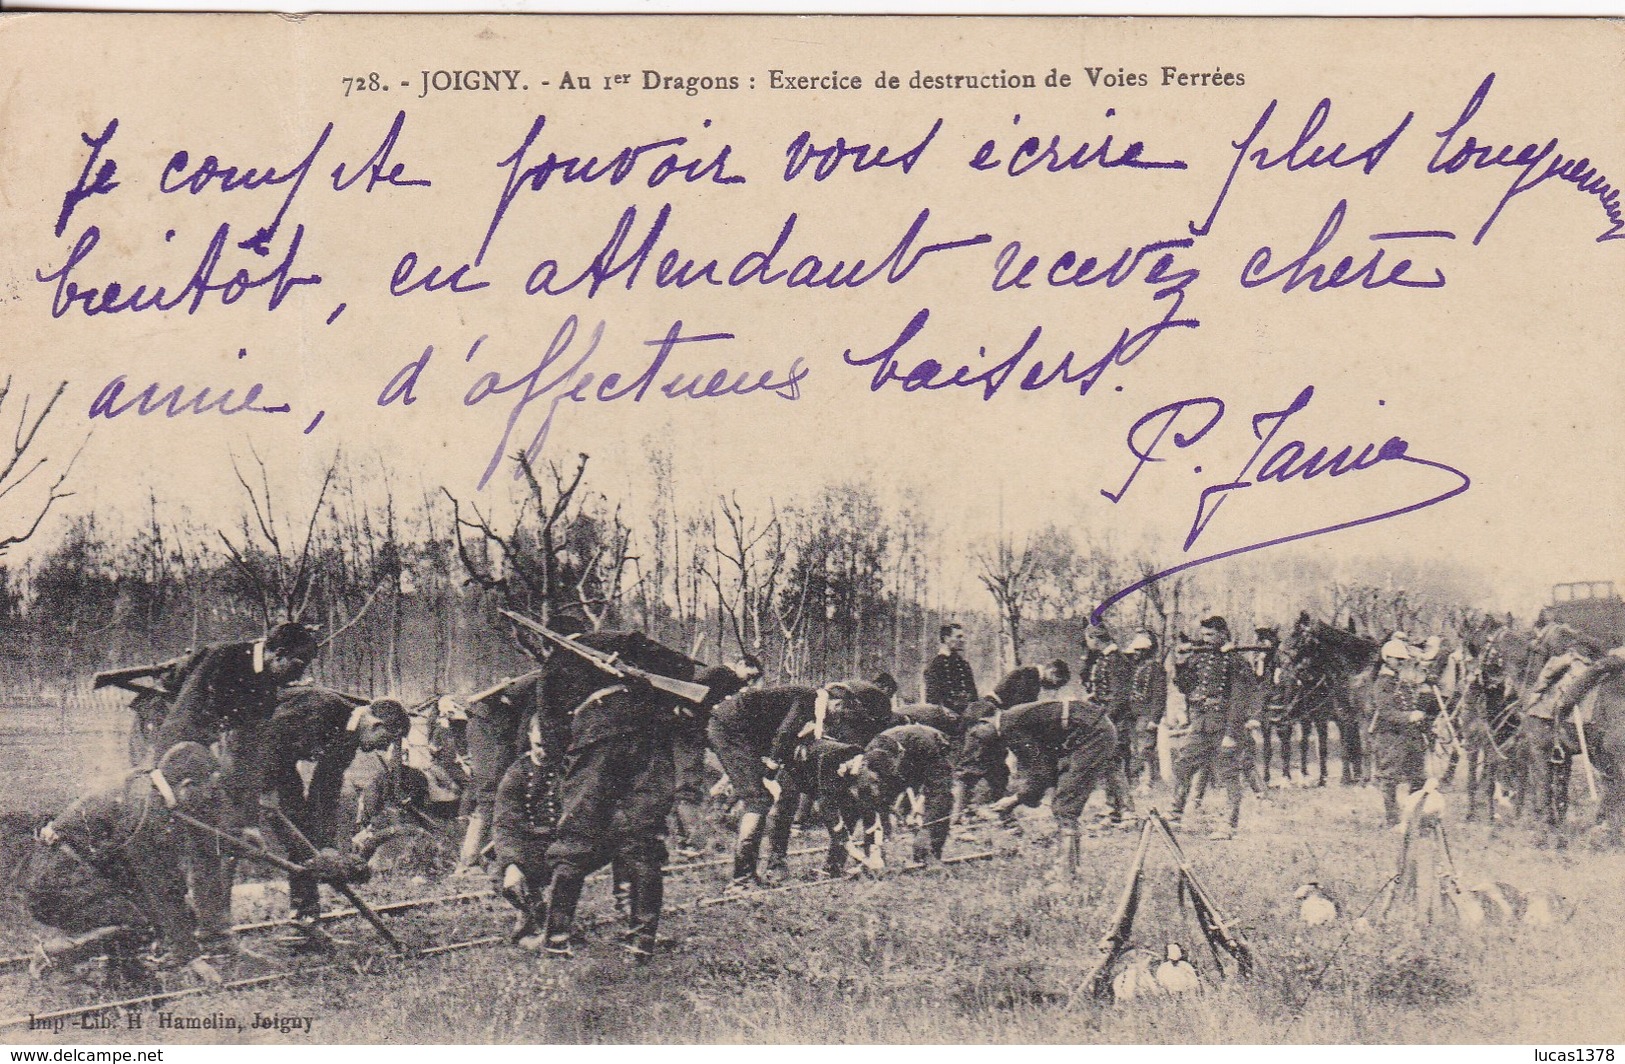 728. - JOIGNY. - Au 1er Dragons : Exercice de destruction de Voies Ferrées
Je compte pouvoir vous écrire plus longuement
bientôt, en attendant recevez chère
amie, d'affectueux baisers.
P. Janie
Imp-Lib. H Hamelin, Joigny
www.delcampe.net
lucas1378